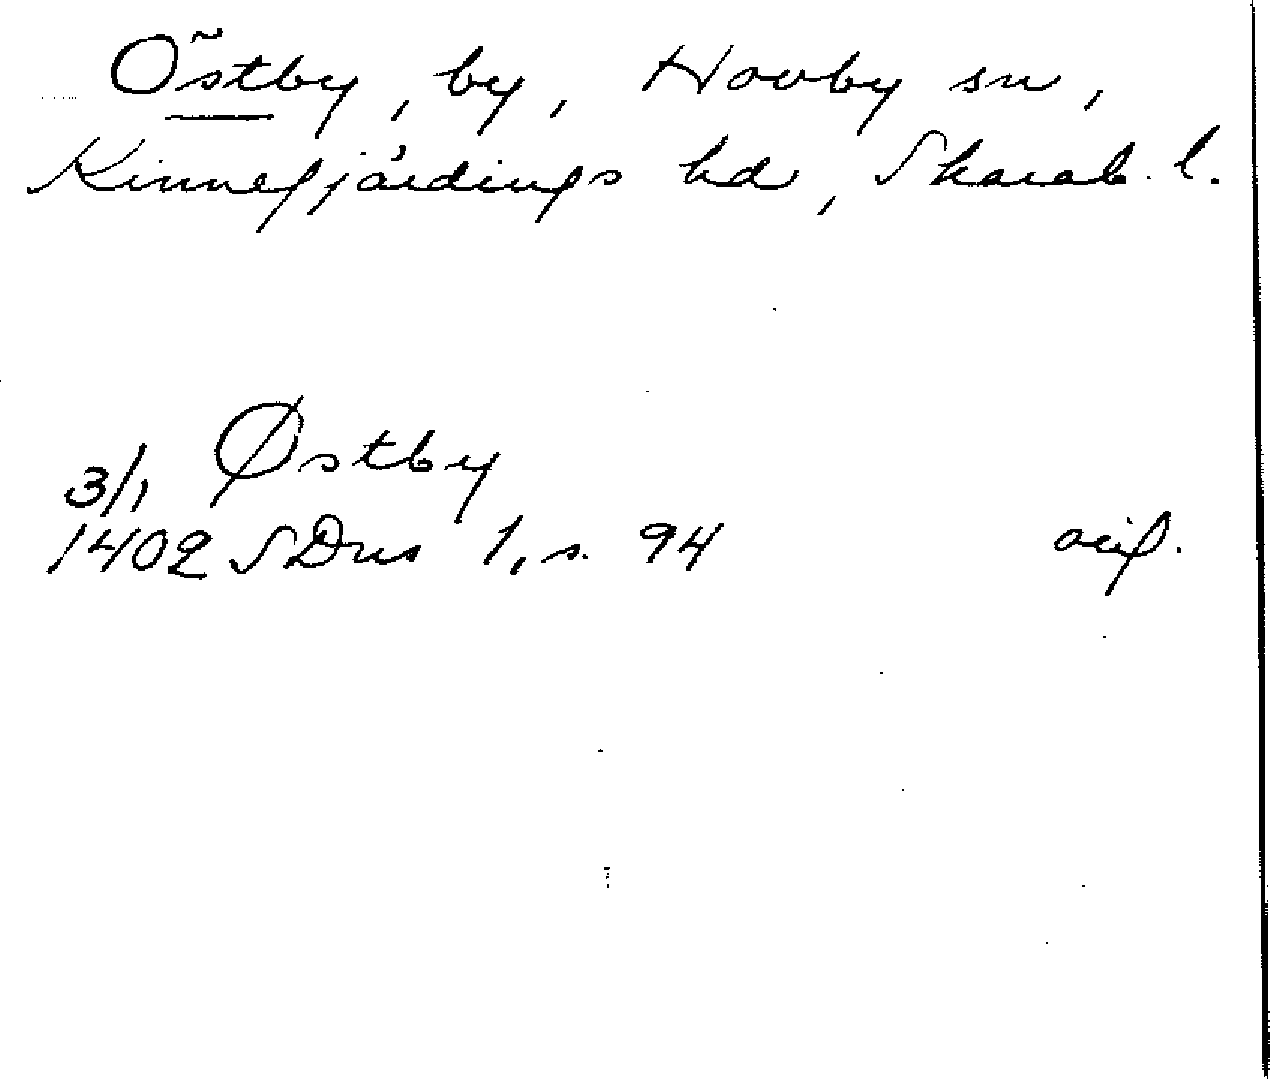 Östby, by, Hovby sn,
Kinnefjärdings hd, Skarab. l.
Østby
3/1
1402 SDns 1, s. 94 orig.